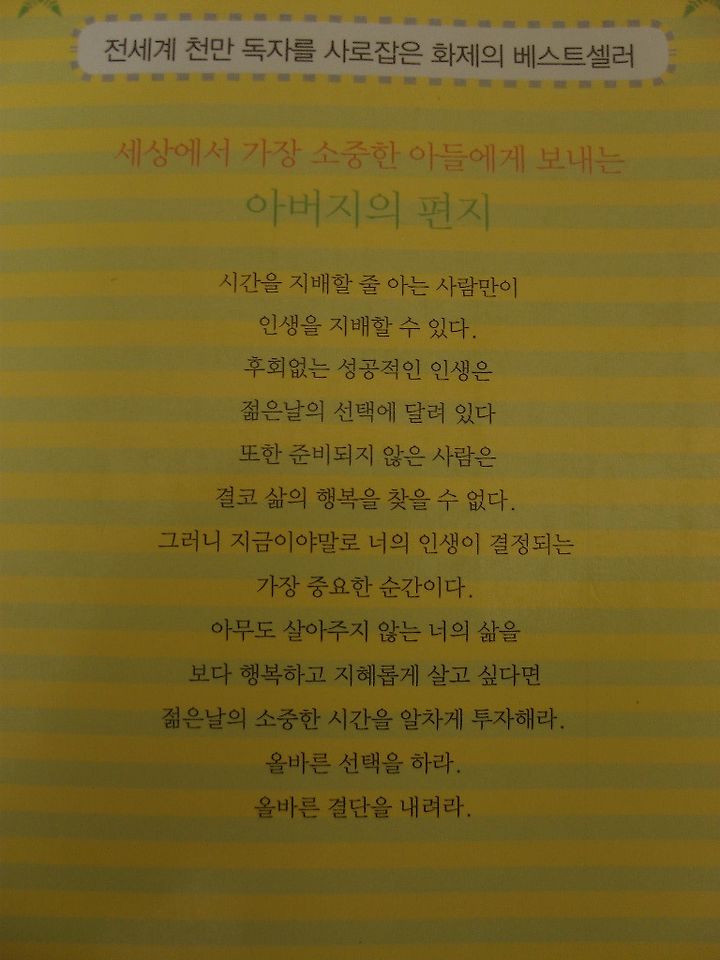 전세계 천만 독자를 사로잡은 화제의 베스트셀러
세상에서 가장 소중한 아들에게 보내는
아버지의 편지
시간을 지배할 줄 아는 사람만이
인생을 지배할 수 있다.
후회없는 성공적인 인생은
젊은날의 선택에 달려 있다
또한 준비되지 않은 사람은
결코 삶의 행복을 찾을 수 없다.
그러니 지금이야말로 너의 인생이 결정되는
가장 중요한 순간이다.
아무도 살아주지 않는 너의 삶을
보다 행복하고 지혜롭게 살고 싶다면
젊은날의 소중한 시간을 알차게 투자해라.
올바른 선택을 하라.
올바른 결단을 내려라.